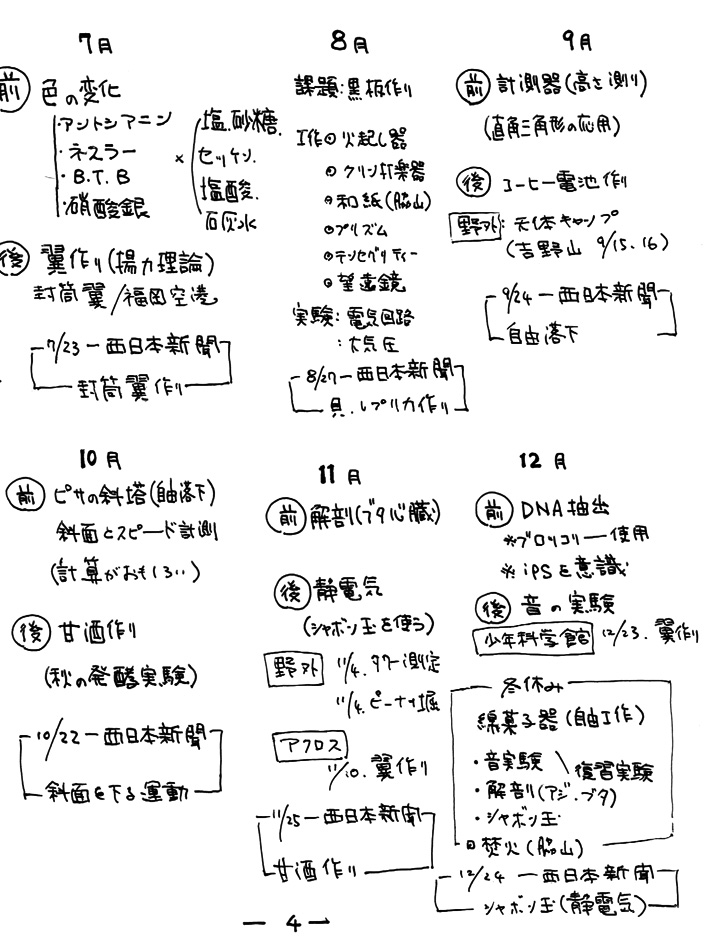 7月
前 色の変化
・アントシアニン
・ネスラー
・B.T.B
・硝酸銀
×
塩.砂糖.
セッケン.
塩酸.
石灰水
後 翼作り(揚力理論)
封筒翼/福岡空港
7/23ー西日本新聞
封筒翼作り
8月
課題:黒板作り
工作⊙火起し器
⊙クリン打楽器
⊙和紙(脇山)
⊙プリズム
⊙テンセグリティー
⊙望遠鏡
実験:電気回路
:大気圧
8/27ー西日本新聞
貝.レプリカ作り
9月
前 計測器(高さ測り)
(直角三角形の応用)
後 コーヒー電池作り
野外:天体キャンプ
(吉野山 9/15、16)
9/24ー西日本新聞
自由落下
10月
前 ピサの斜塔(自由落下)
斜面とスピード計測
(計算がおもしろい)
後 甘酒作り
(秋の発酵実験)
10/22ー西日本新聞
斜面を下る運動
11月
前 解剖(ブタ心臓)
後 静電気
(シャボン玉を使う)
野外 11/4.タワー測定
11/4.ピーナツ掘
アクロス
11/10.翼作り
11/25ー西日本新聞
甘酒作り
12月
前 DNA抽出
※ブロッコリー使用
※iPSを意識
後 音の実験
少年科学館 12/23.翼作り
冬休み
綿菓子器(自由工作)
・音実験
・解剖(アジ.ブタ)
復習実験
・シャボン玉
⊡焚火(脇山)
12/24ー西日本新聞
シャボン玉(静電気)
ー 4 ー